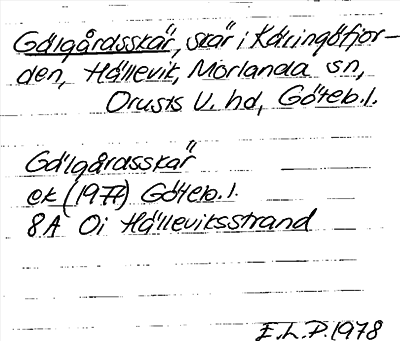 Gälgårdsskär, skär i Käringöfjor-
den, Hällevik, Morlanda sn,
Orusts V. hd, Göteb.l.
Gälgårdsskär
ek (1977) Göteb.l.
8A Oi Hälleviksstrand
E.L.P. 1978